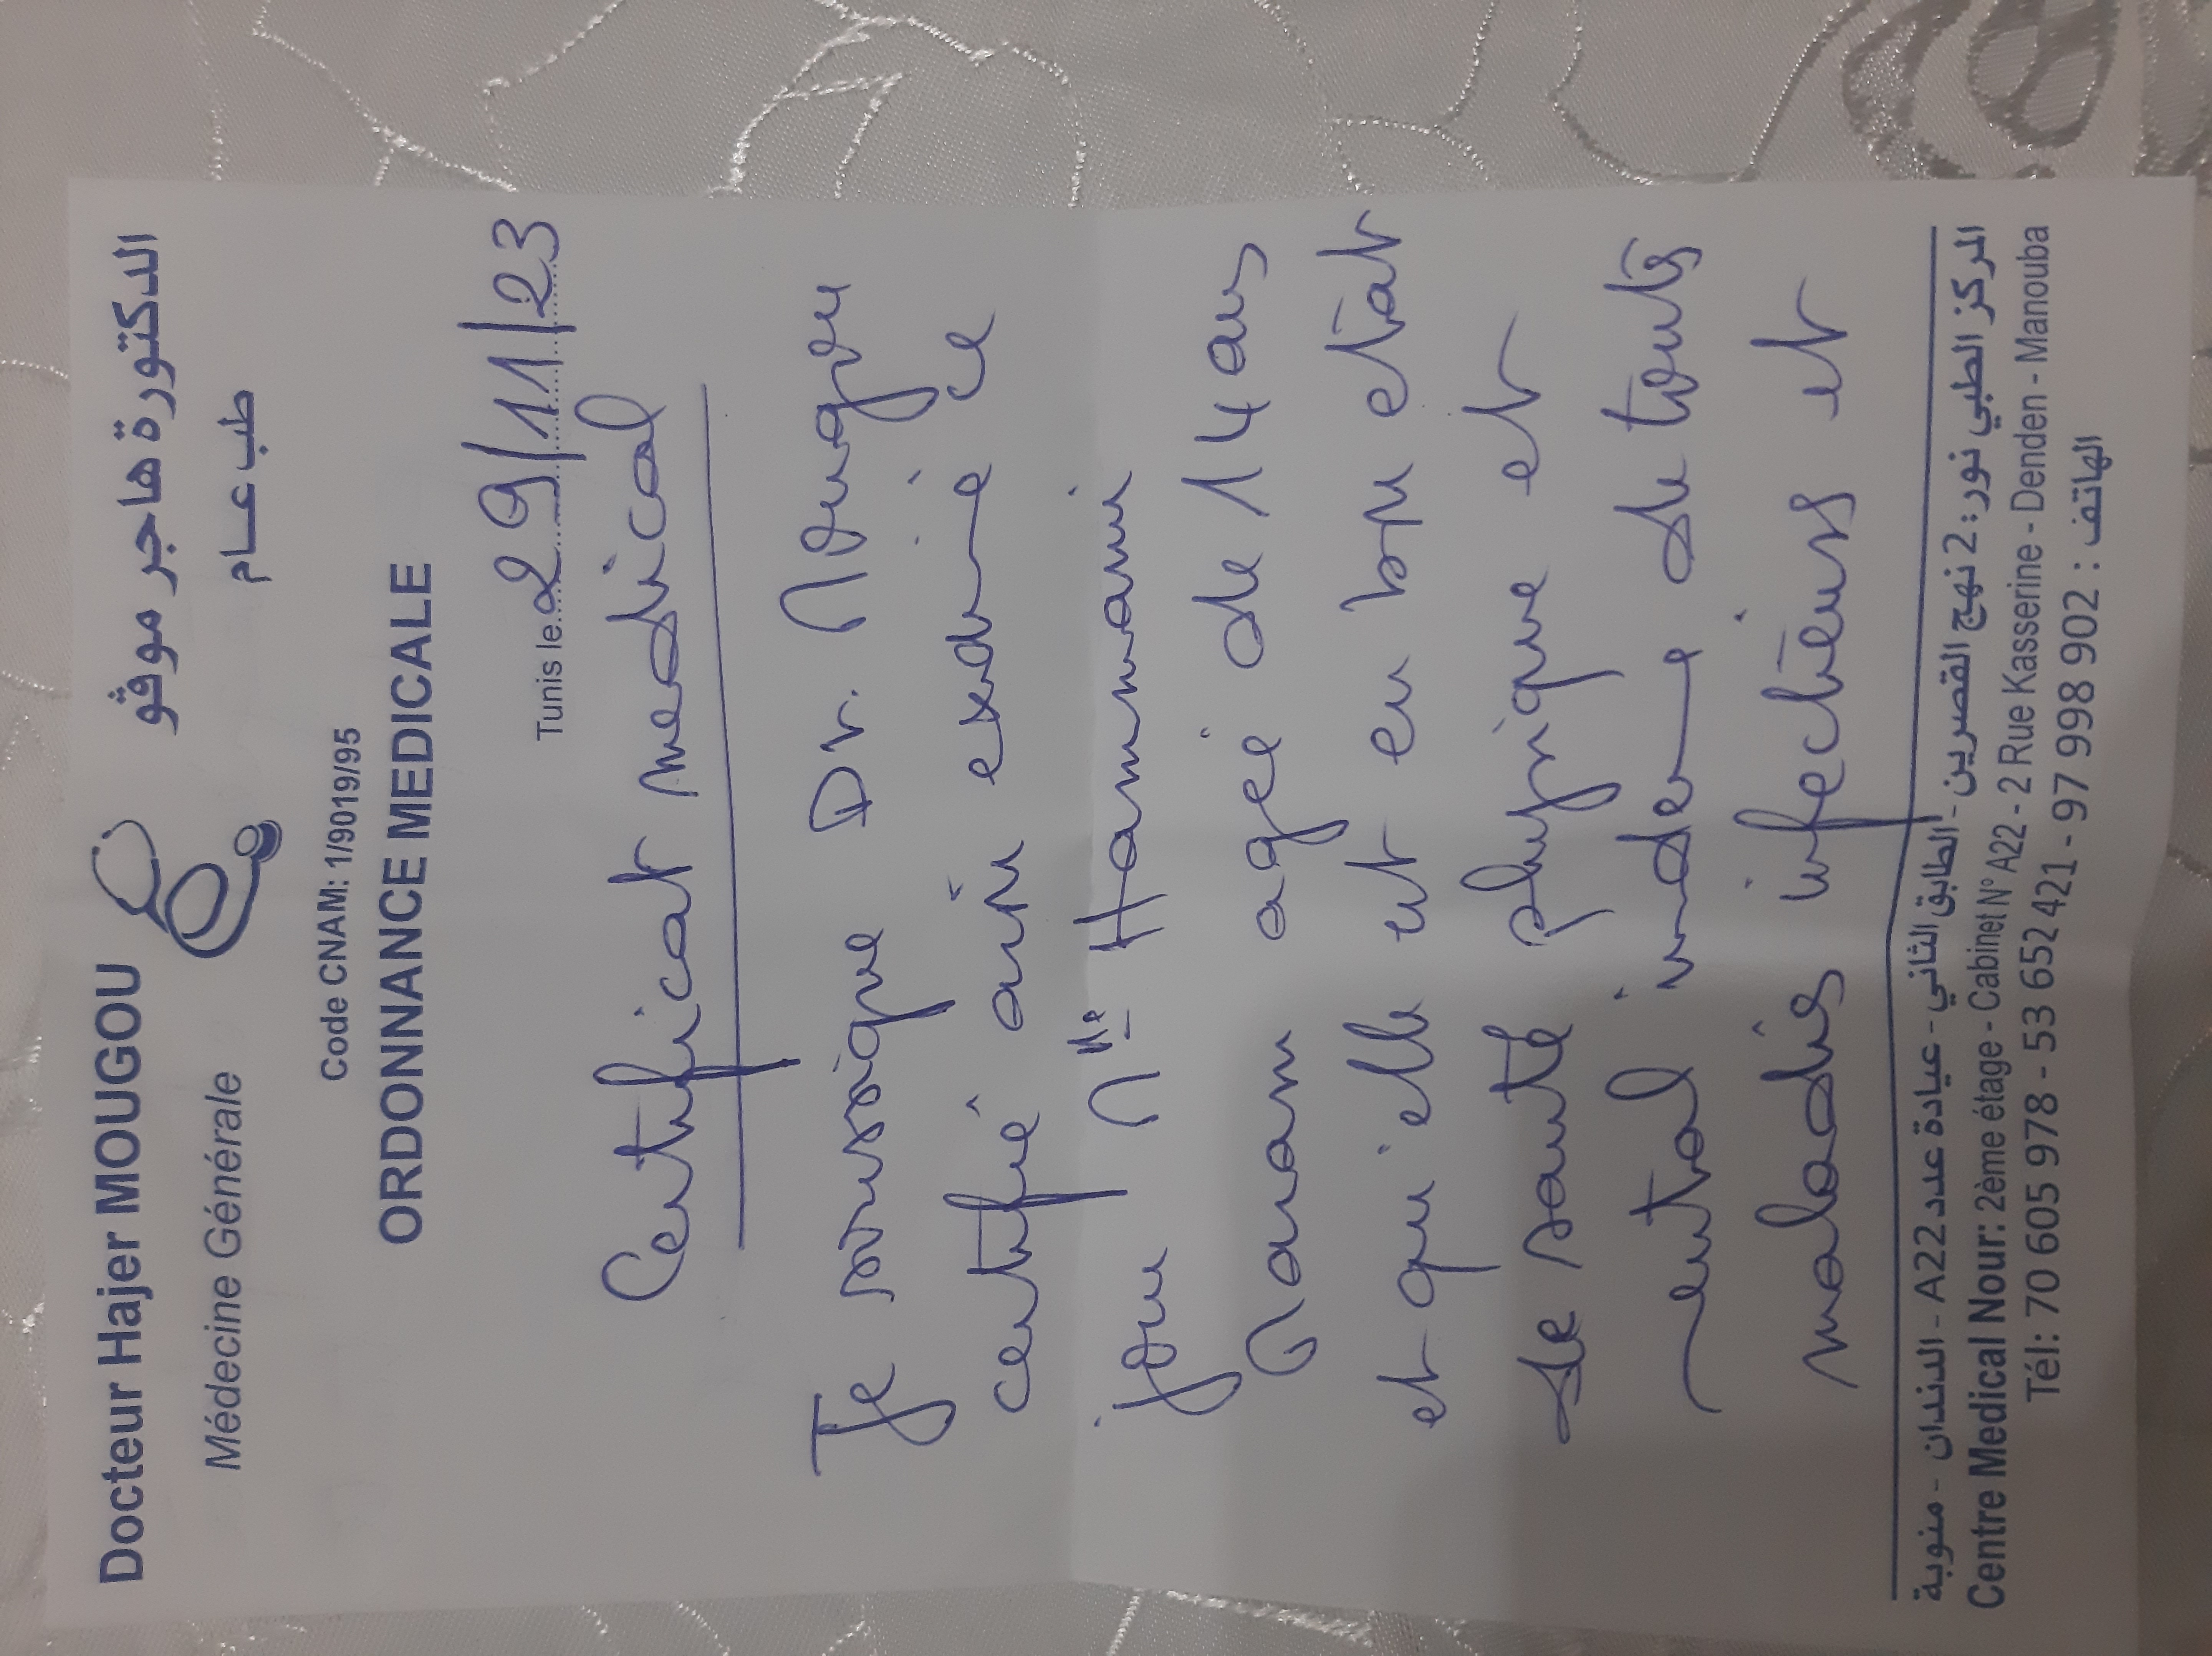 Docteur Hajer MOUGOU
الدكتورة هاجر موقو
Médecine Générale
طب عام
Code CNAM: 1/9019/95
ORDONNANCE MEDICALE
Tunis le 29/11/23
Certificat medical
Je soussigné Dr. Mougou
certifié avoir examiné ce
jour Mlle Hammami
Maram agée de 14 ans
et qui elle est en bon etat
de santé physique et
mental indemne de touts
maladies infectieuse et
المركز الطبي نور: 2 نهج القصرين - الطابق الثاني - عيادة عدد A22 - الدندان - منوبة
Centre Medical Nour: 2ème étage - Cabinet N° A22 - 2 Rue Kasserine - Denden - Manouba
Tél: 70 605 978 - 53 652 421 - 97 998 902 : الهاتف